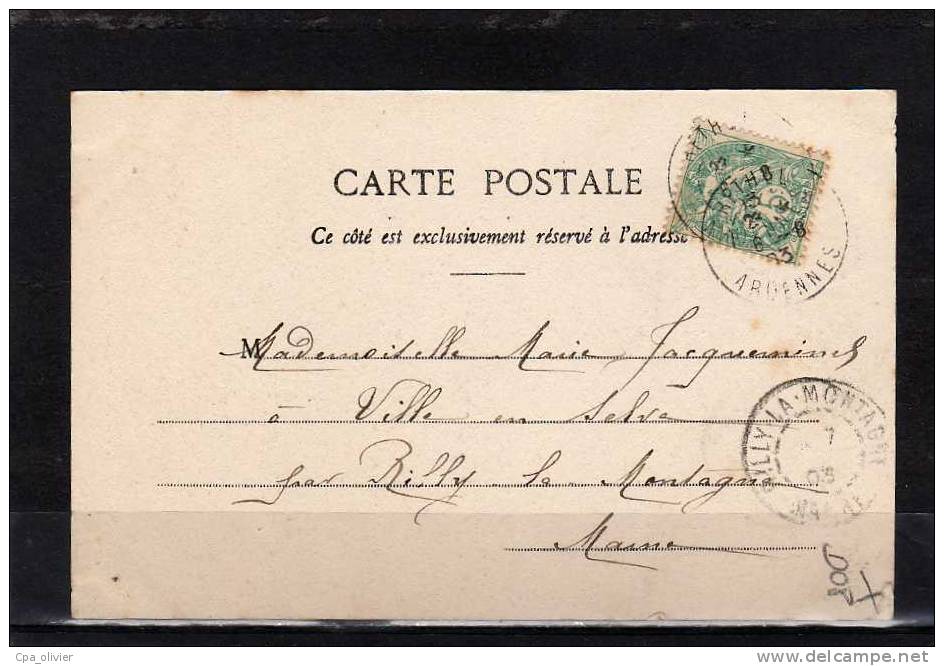 CARTE POSTALE
Ce côté est exclusivement réservé à l'adresse
RETHEL
ARDENNES
Mademoiselle Marie Jacqueminet
à Ville en Selve
par Rilly la Montagne
Marne
RILLY-LA-MONTAGNE
7
03
MARNE
Cpa_olivier
delcampe.net